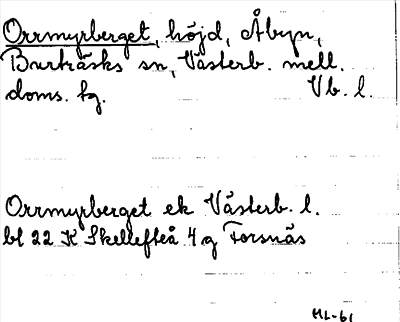 Orrmyrberget, höjd, Åbyn,
Burträsks sn, Västerb. mell.
doms. tg. Vb. l.
Orrmyrberget ek Västerb. l.
bl 22 K Skellefteå 4 g Forsnäs
ML-61